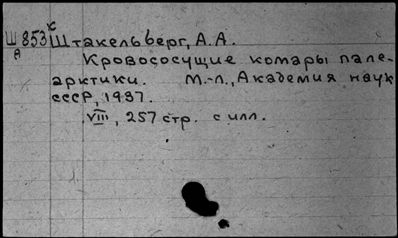 Ш853к Штакельберг, А.А.
А
Кровососущие комары пале-
арктики. М.-Л., Академия наук
СССР, 1937.
VIII, 257 стр. с илл.